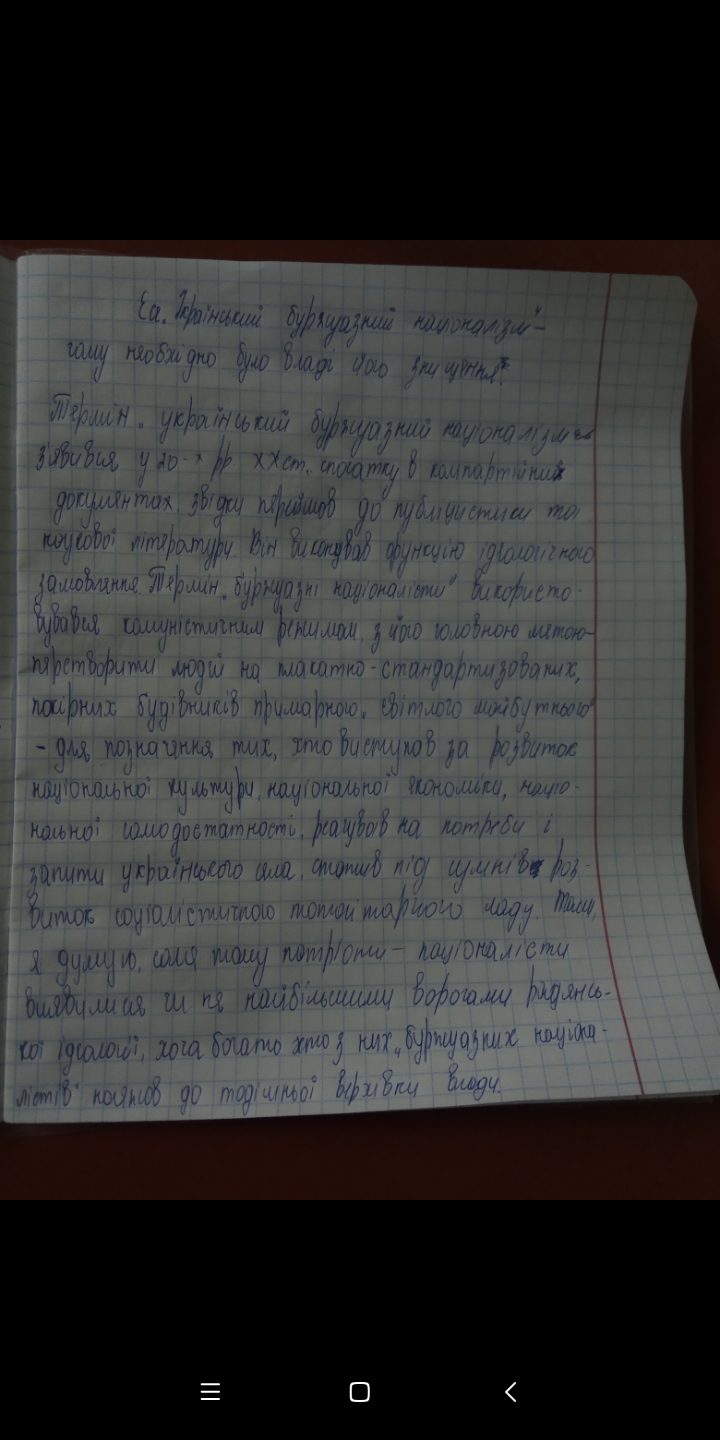 Еса. "Український буржуазний націоналізм" –
чому необхідно було владі його знищення?
Термін „український буржуазний націоналізм"
з'явився у 20-х рр ХХ ст. спочатку в компартійних
документах, звідки перейшов до публіцистики та
наукової літератури. Він виконував функцію ідеологічного
замовлення. Термін „буржуазні націоналісти" використо-
вувався комуністичним режимом, з його головною метою –
перетворити людей на плакатно-стандартизованих,
покірних будівників примарного „світлого майбутнього"
– для позначення тих, хто виступав за розвиток
національної культури, національної економіки, націо-
нальної самодостатності, реагував на потреби і
запити українського села, ставив під сумнів роз-
виток соціалістичного тоталітарного ладу. Тому,
я думаю, саме тому патріоти – націоналісти
виявилися чи не найбільшими ворогами радянсь-
кої ідеології, хоча багато хто з них „буржуазних націона-
лістів" належав до тодішньої верхівки влади.